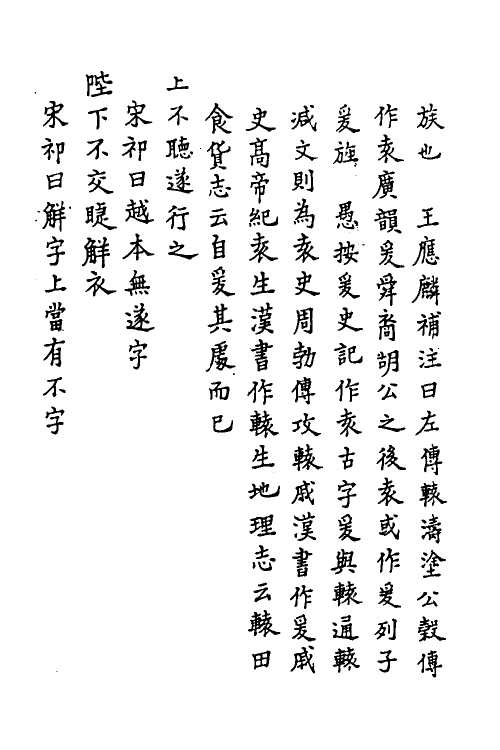 族也　王應麟補注曰左傳轅濤塗公穀傳
作袁廣韻爰舜裔胡公之後袁或作爰列子
爰旌　愚按爰史記作袁古字爰與轅通轅
減文則為袁史周勃傳攻轅戚漢書作爰戚
史髙帝紀袁生漢書作轅生地理志云轅田
食貨志云自爰其處而已
上不聽遂行之
宋祁曰越本無遂字
陛下不交睫解衣
宋祁曰解字上當有不字